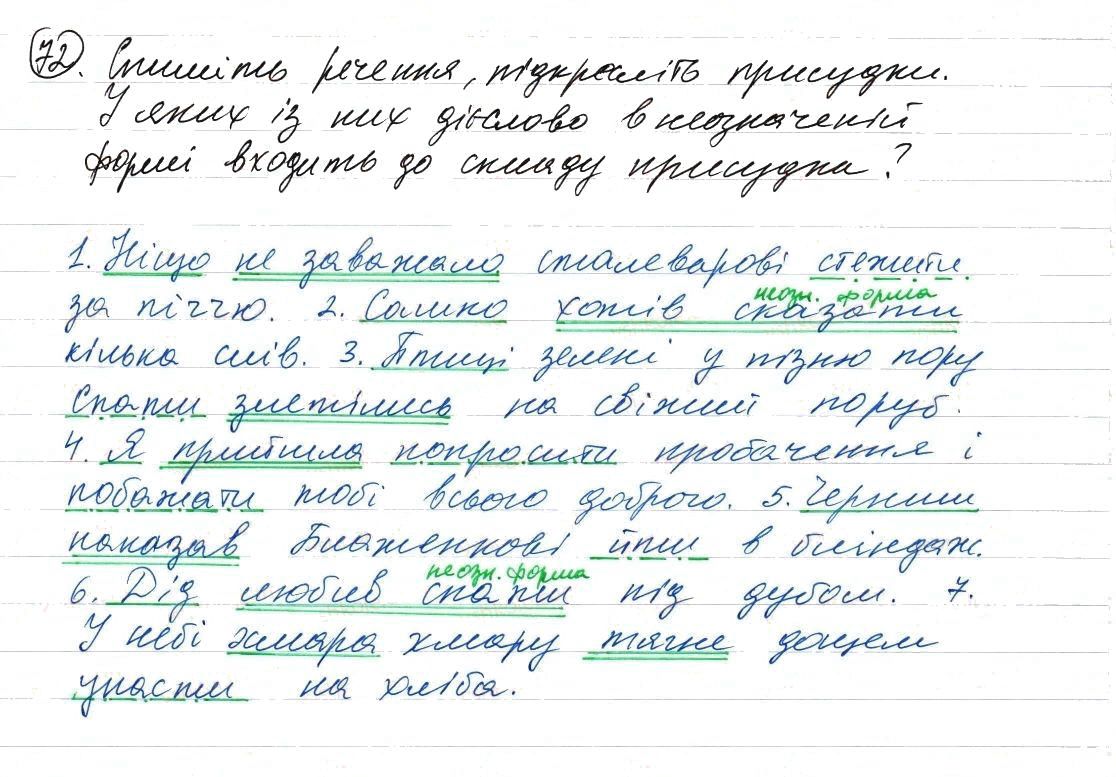 72. Спишіть речення, підкресліть присудки.
У яких із них дієслово в неозначеній
формі входить до складу присудка?
1. Ніщо не заважало сталеварові стежити
неозн. форма
за піччю. 2. Сашко хотів сказати
кілька слів. 3. Птиці зелені у пізню пору
спати злетілись на свіжий поруб.
4. Я прийшла попросити пробачення і
побажати тобі всього доброго. 5. Черниш
наказав Блаженкові йти в бліндаж.
неозн. форма
6. Дід любив спати під дубом. 7.
У небі хмара хмару тягне дощем
упасти на хліба.